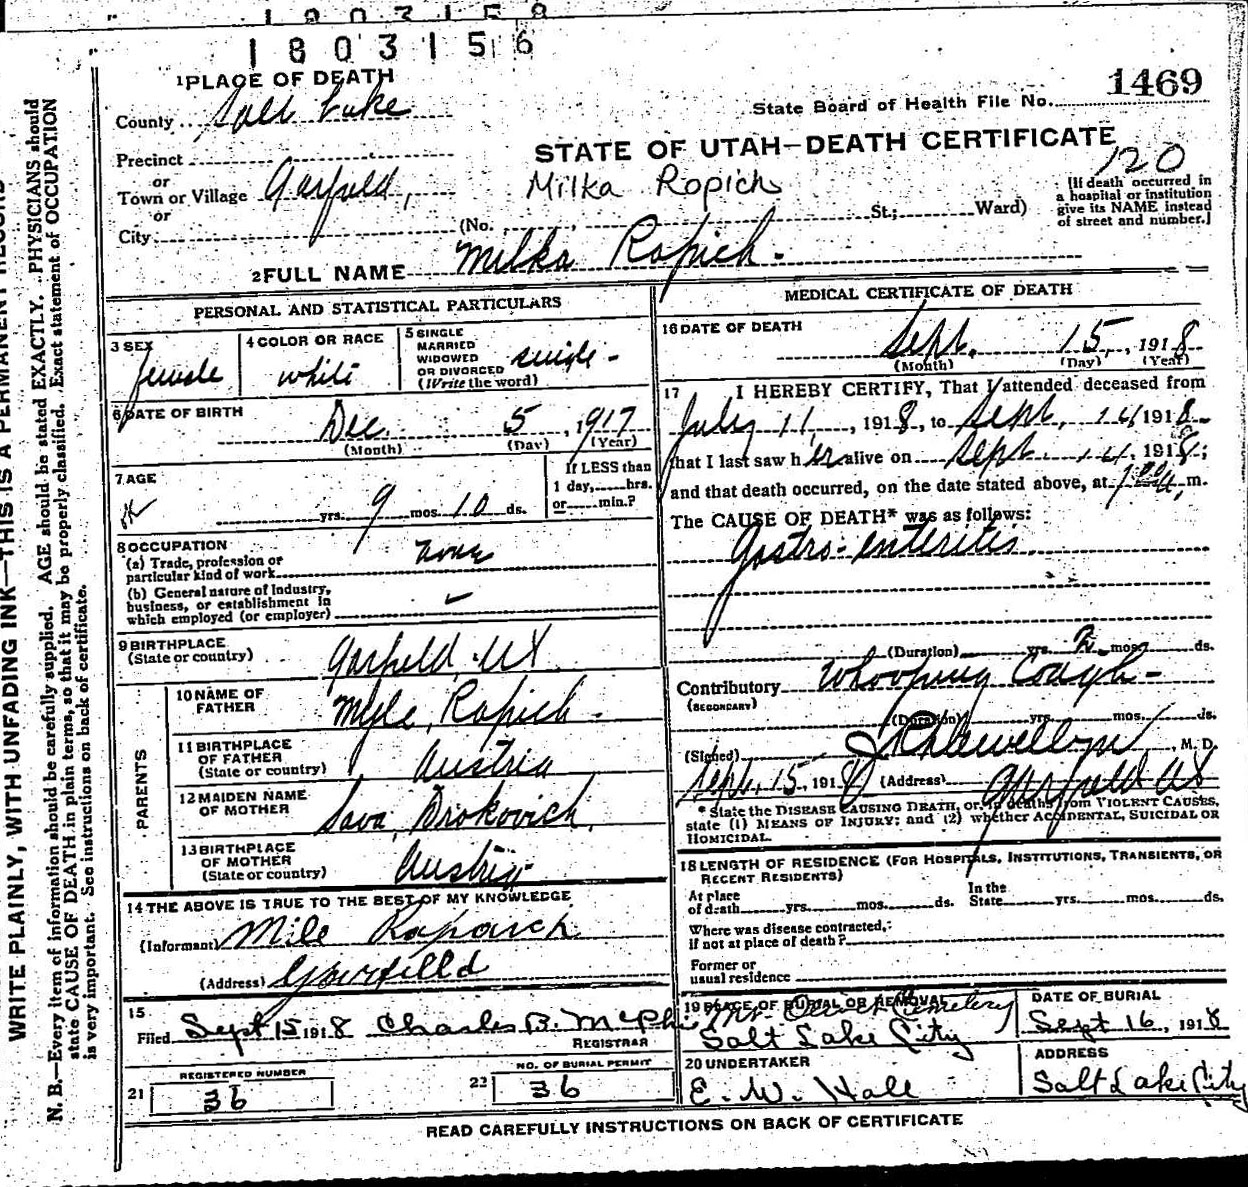 1803158
1803156
1469
State Board of Health File No.
1 PLACE OF DEATH
County Salt Lake
STATE OF UTAH—DEATH CERTIFICATE
120
Precinct
or
Town or Village Garfield,
Milka Ropich
or
City
(No. St.; Ward)
[If death occurred in
a hospital or institution
give its NAME instead
of street and number.]
2 FULL NAME Milka Ropich.
PERSONAL AND STATISTICAL PARTICULARS
3 SEX
female
4 COLOR OR RACE
white
5 SINGLE
MARRIED
WIDOWED
OR DIVORCED
(Write the word)
single -
6 DATE OF BIRTH
Dec. 5, 1917
(Month) (Day) (Year)
7 AGE
yrs. 9 mos. 10 ds.
If LESS than
1 day, hrs.
or min.?
8 OCCUPATION
(a) Trade, profession or
particular kind of work
none
(b) General nature of Industry,
business, or establishment in
which employed (or employer)
9 BIRTHPLACE
(State or country)
Garfield, Ut
PARENTS
10 NAME OF
FATHER
Myle, Ropich.
11 BIRTHPLACE
OF FATHER
(State or country)
Austria
12 MAIDEN NAME
OF MOTHER
Sava, Drokovich.
13 BIRTHPLACE
OF MOTHER
(State or country)
Austria
14 THE ABOVE IS TRUE TO THE BEST OF MY KNOWLEDGE
(Informant) Mile
(Address)
15
Filed Sept 15 1918 Charles B. McPhi
REGISTRAR
21
REGISTERED NUMBER
36
22
NO. OF BURIAL PERMIT
36
MEDICAL CERTIFICATE OF DEATH
16 DATE OF DEATH
Sept. 15, 1918
(Month) (Day) (Year)
17 I HEREBY CERTIFY, That I attended deceased from
July 11, 1918, to Sept. 14 1918
that I last saw her alive on Sept. 14, 1918;
and that death occurred, on the date stated above, at m.
The CAUSE OF DEATH* was as follows:
Gastro-enteritis
(Duration) yrs. 2 mos. ds.
Contributory Whooping Cough -
(SECONDARY)
(Duration) yrs. mos. ds.
(Signed) , M. D.
Sept. 15, 1918 (Address) Garfield Ut
* State the DISEASE CAUSING DEATH, or, in deaths from VIOLENT CAUSES,
state (1) MEANS OF INJURY; and (2) whether ACCIDENTAL, SUICIDAL OR
HOMICIDAL.
18 LENGTH OF RESIDENCE (FOR HOSPITALS, INSTITUTIONS, TRANSIENTS, OR
RECENT RESIDENTS)
At place
of death yrs. mos. ds.
In the
State yrs. mos. ds.
Where was disease contracted,
if not at place of death?
Former or
usual residence
19 PLACE OF BURIAL OR REMOVAL
Mt. Olivet Cemetery
Salt Lake City
DATE OF BURIAL
Sept 16, 1918
20 UNDERTAKER
E. W. Hall
ADDRESS
Salt Lake City
READ CAREFULLY INSTRUCTIONS ON BACK OF CERTIFICATE
WRITE PLAINLY, WITH UNFADING INK—THIS IS A PERMANENT RECORD
N. B.—Every item of information should be carefully supplied. AGE should be stated EXACTLY. PHYSICIANS should
state CAUSE OF DEATH in plain terms, so that it may be properly classified. Exact statement of OCCUPATION
is very important. See instructions on back of certificate.